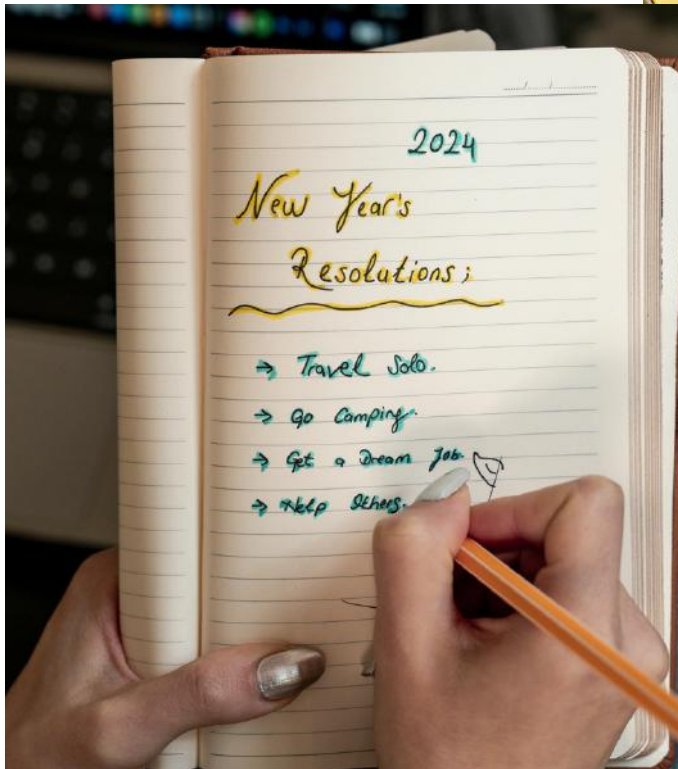 2024
New Year's
Resolutions;
→ Travel Solo.
→ Go Camping.
→ Get a Dream Job.
→ Help Others.